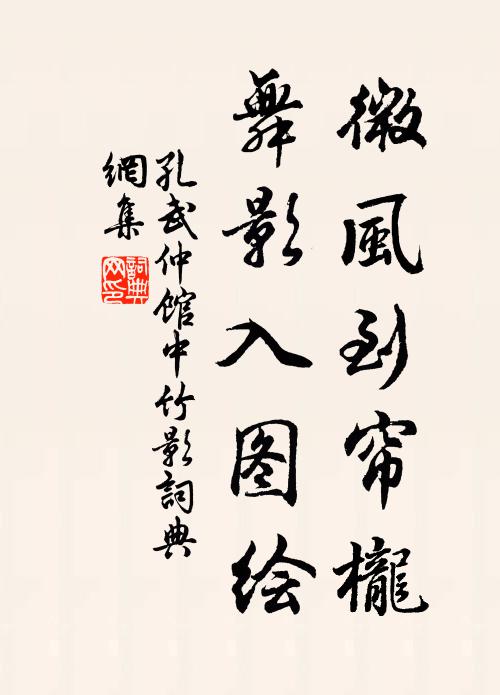 微風到帘櫳
舞影入图绘
孔武仲馆中竹影詞典
網集
詞典網印